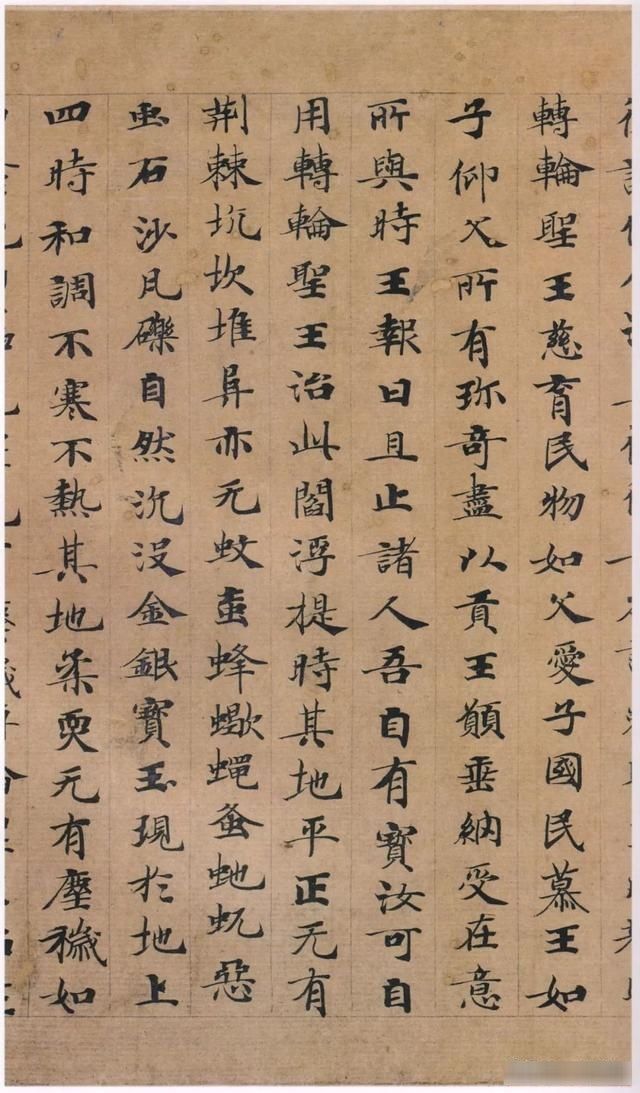 轉輪聖王慈育民物如父愛子國民慕王如
子仰父所有珎奇盡以貢王願垂納受在意
所與時王報曰且止諸人吾自有寶汝可自
用轉輪聖王治此閻浮提時其地平正无有
荆棘坑坎堆阜亦无蚊䖟蜂蠍蠅蚤虵蚖惡
虫石沙凡礫自然沉没金銀寶玉現於地上
四時和調不寒不熱其地柔耎无有塵穢如